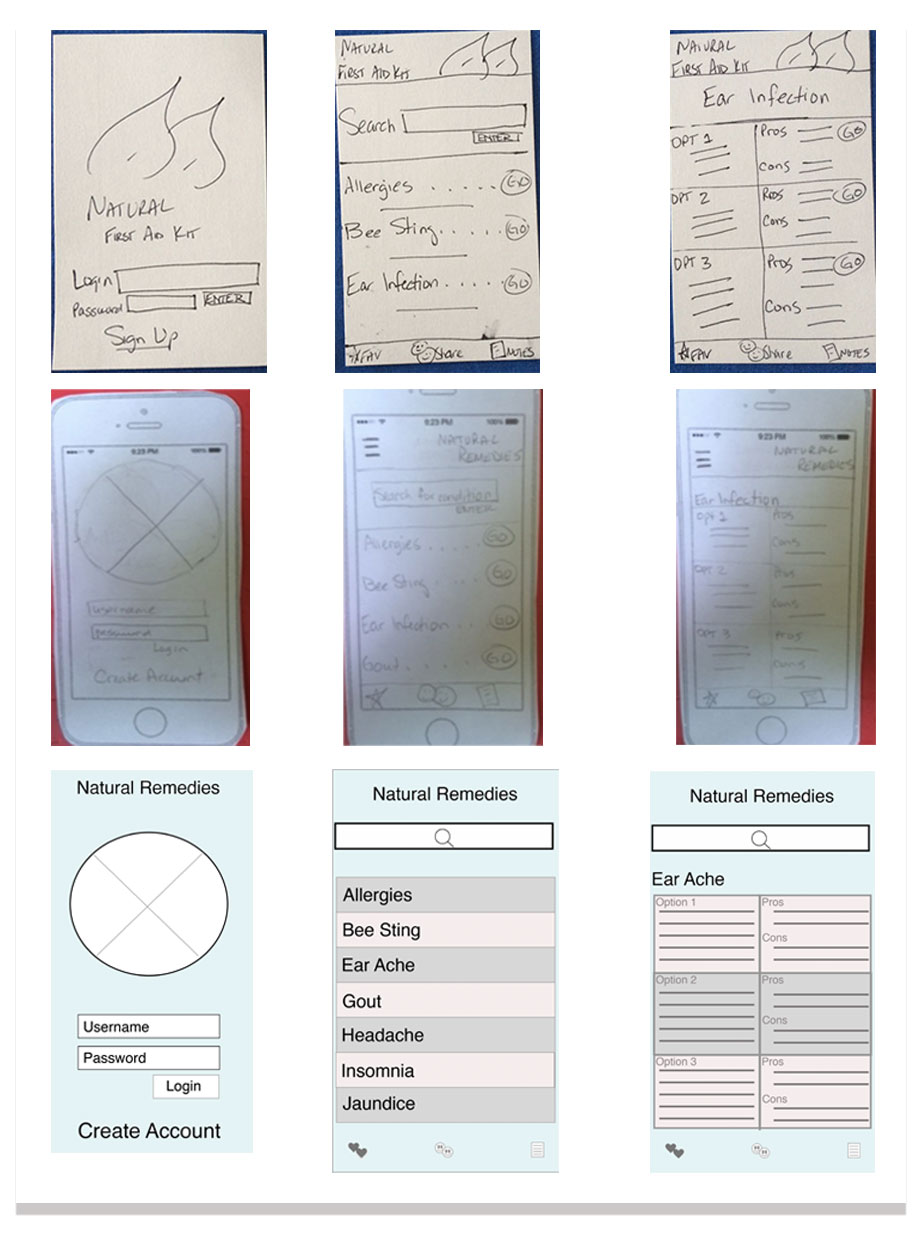 NATURAL
FIRST AID KIT
Login
Password ENTER
Sign Up
NATURAL
FIRST AID KIT
Search
ENTER
Allergies . . . . . GO
Bee Sting . . . . . GO
Ear Infection . . . . . GO
FAV Share NOTES
NATURAL
FIRST AID KIT
Ear Infection
OPT 1 Pros GO
Cons
OPT 2 Pros GO
Cons
OPT 3 Pros GO
Cons
FAV Share NOTES
9:23 PM 100%
username
password
Login
Create Account
9:23 PM 100%
NATURAL
REMEDIES
Search for condition
ENTER
Allergies . . . . GO
Bee Sting . . . . GO
Ear Infection . . . GO
Gout . . . . . GO
9:23 PM 100%
NATURAL
REMEDIES
Ear Infection
OPT 1 Pros
Cons
OPT 2 Pros
Cons
OPT 3 Pros
Cons
Natural Remedies
Username
Password
Login
Create Account
Natural Remedies
Allergies
Bee Sting
Ear Ache
Gout
Headache
Insomnia
Jaundice
Natural Remedies
Ear Ache
Option 1 Pros
Cons
Option 2 Pros
Cons
Option 3 Pros
Cons